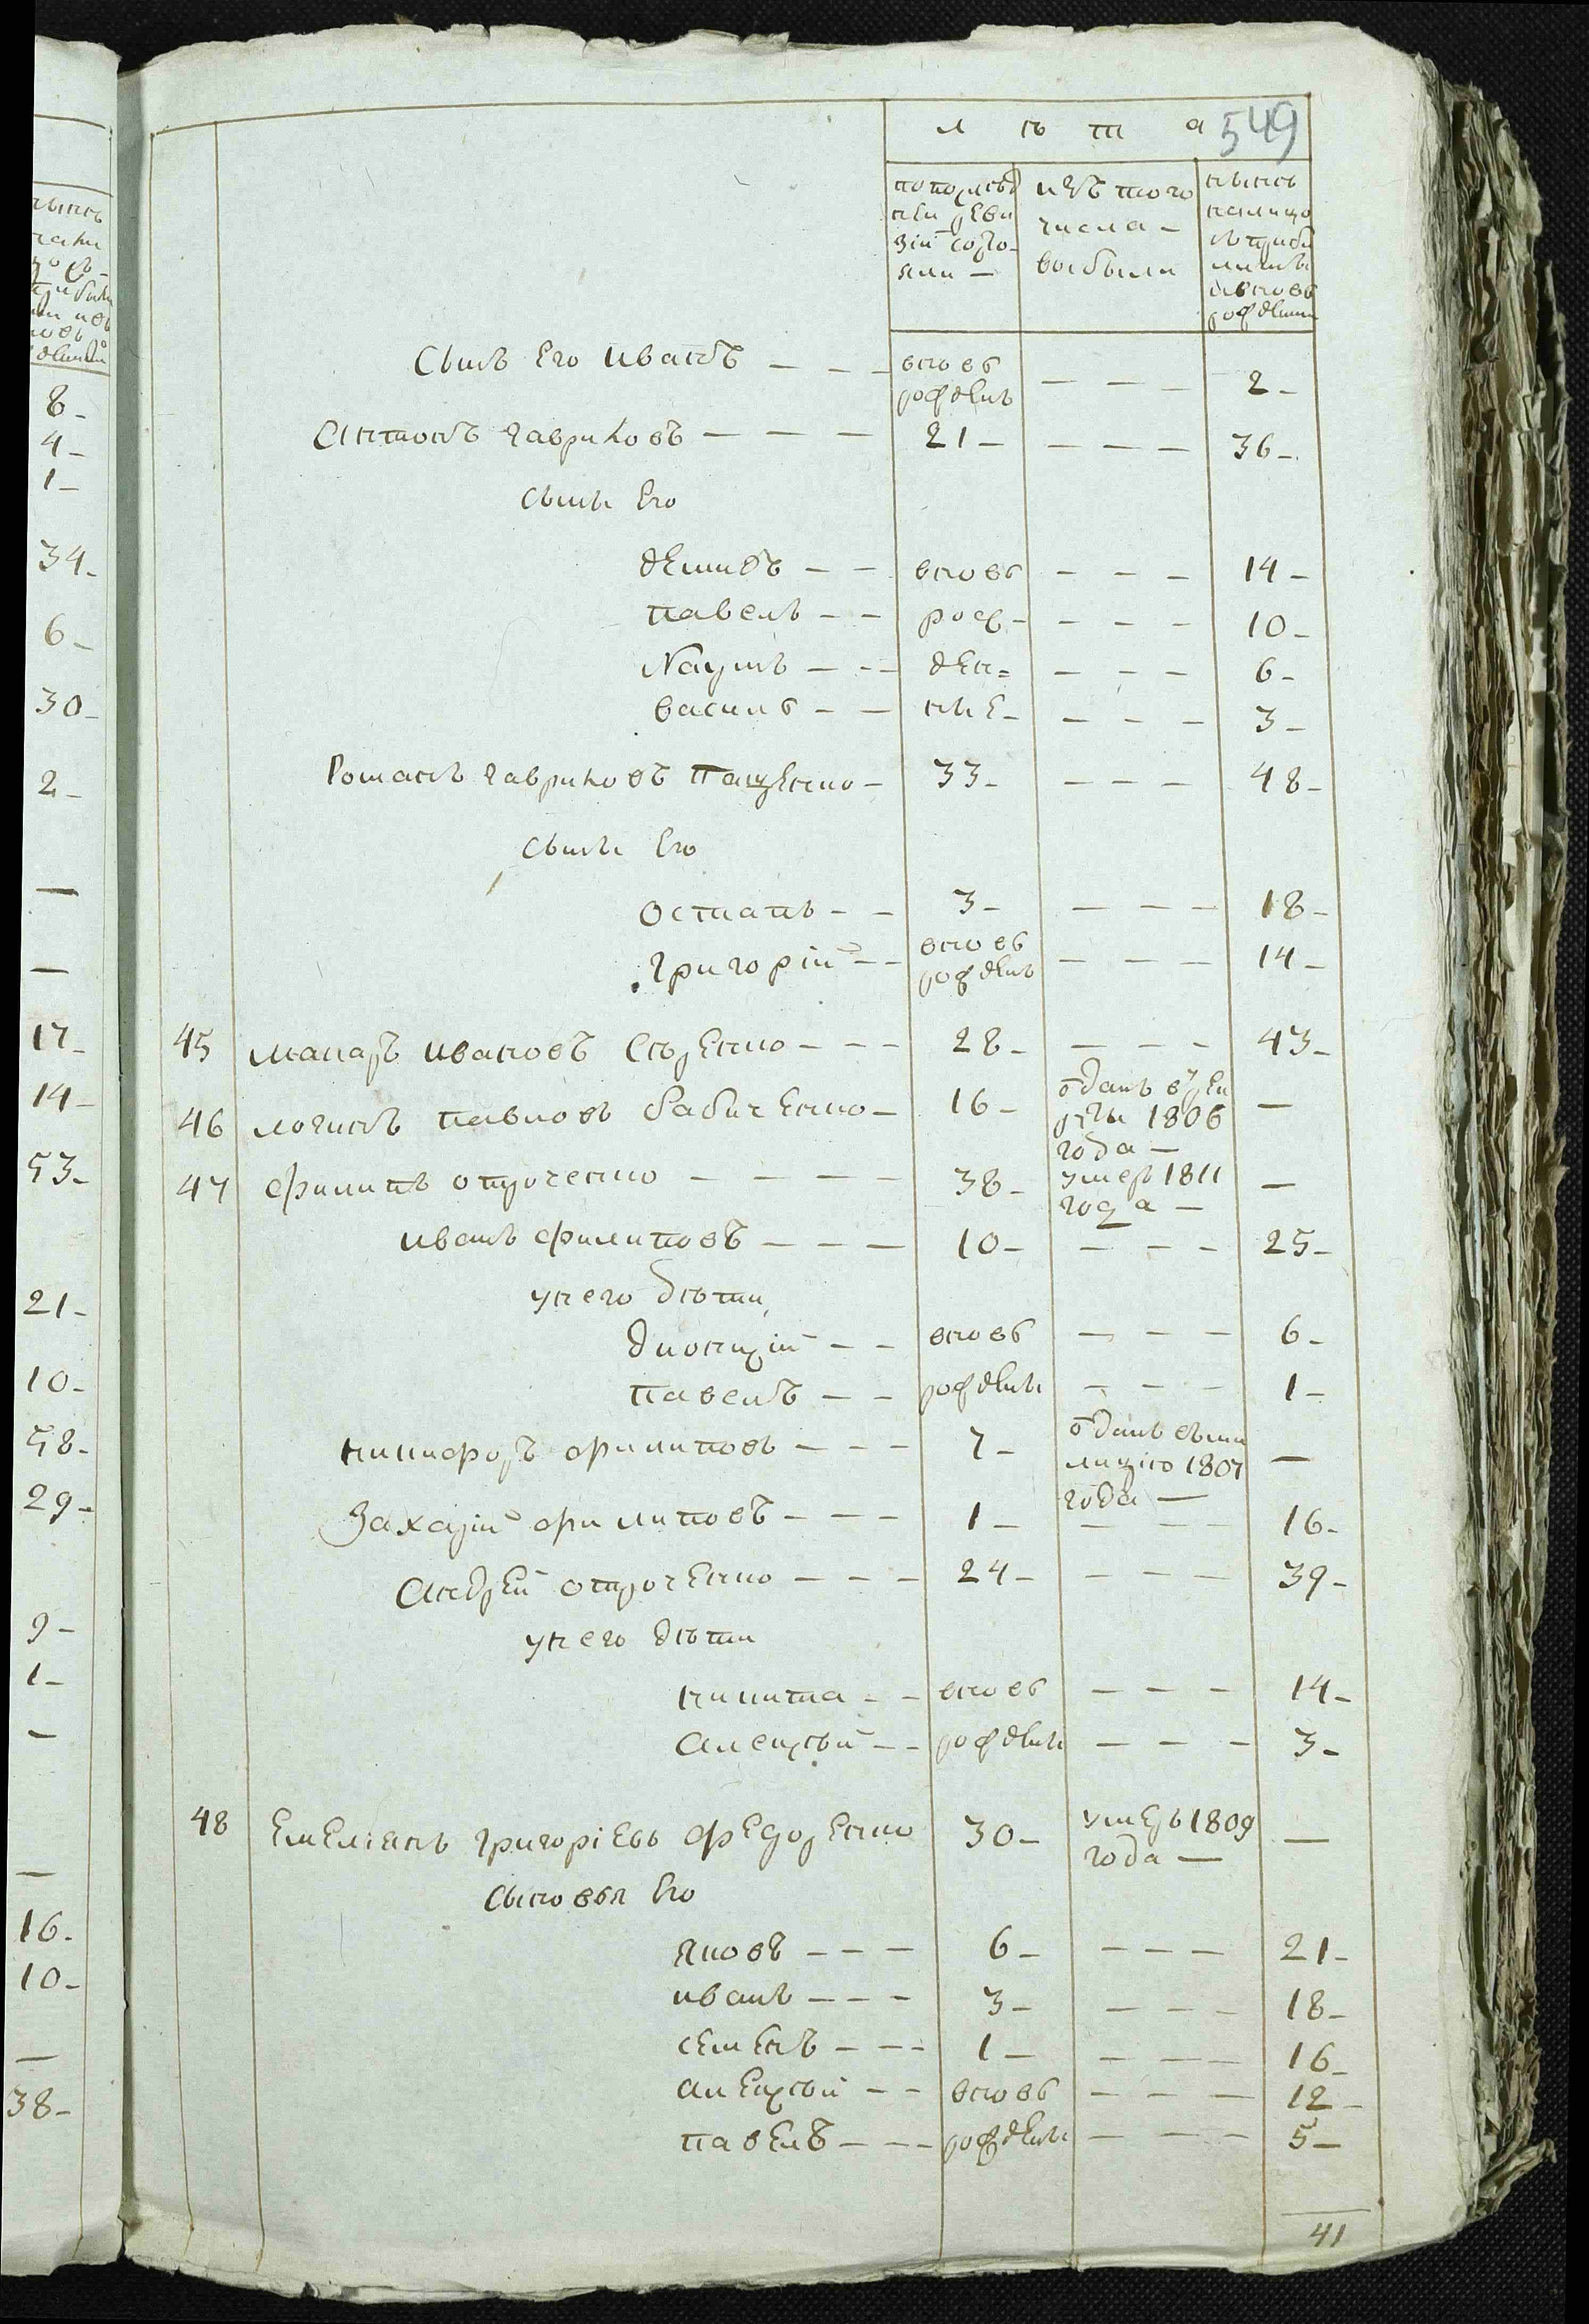 549
лѣта
по послѣд
ней реви
зіи состо
яли —
изъ того
числа —
выбыли
нынѣ
налицо
съ прибы
лыми
и вновь
рожденны
Сынъ Его иванъ — — — вновь рожденъ — — — 2 –
Антонъ гавриловъ — — — 21 – — — — 36 –
Сыны Его
демидъ — — вновь — — — 14 –
павелъ — — рож – — — — 10 –
Наумъ — — ден = — — — 6 –
василь — — ные – — — — 3 –
Романъ гавриловъ пащенко – 33 – — — — 48 –
Сыны Его
Остапъ – – 3 – — — — 18 –
григорій – – вновь рожденъ — — — 14 –
45 макаръ ивановъ Сѣренко – – – 28 – — — — 43 –
46 логинъ павловъ бабиченко – 16 – отданъ в рек
руты 1806
года — —
47 филипъ отроченко — — — — 38 – умеръ 1811
года — —
иванъ филиповъ — — — 10 – — — — 25 –
у него дѣти
дионизій — — вновь — — — 6 –
павелъ — — рожденны — — — 1 –
никифоръ филиповъ — — — 7 – отданъ въ ми
лицію 1807
года — —
Захарій филиповъ – – – 1 – — — — 16 –
Андрей отроченко — — — 24 – — — — 39 –
у него дѣти
никита – – вновь — — — 14 –
Алексѣй – – рожденны — — — 3 –
48 Емеліанъ григоріевъ федоренко 30 – умеръ 1809
года — —
Сыновья Его
яковъ — — — 6 – — — — 21 –
иванъ — — — 3 – — — — 18 –
семенъ — — — 1 – — — — 16 –
алексѣй — — вновь — — — 12 –
павелъ — — – рожденны — — — 5 –
41
8 –
4 –
1 –
34 –
6 –
30 –
2 –
—
—
17 –
14 –
53 –
21 –
10 –
58 –
29 –
9 –
1 –
–
—
16 –
10 –
—
38 –